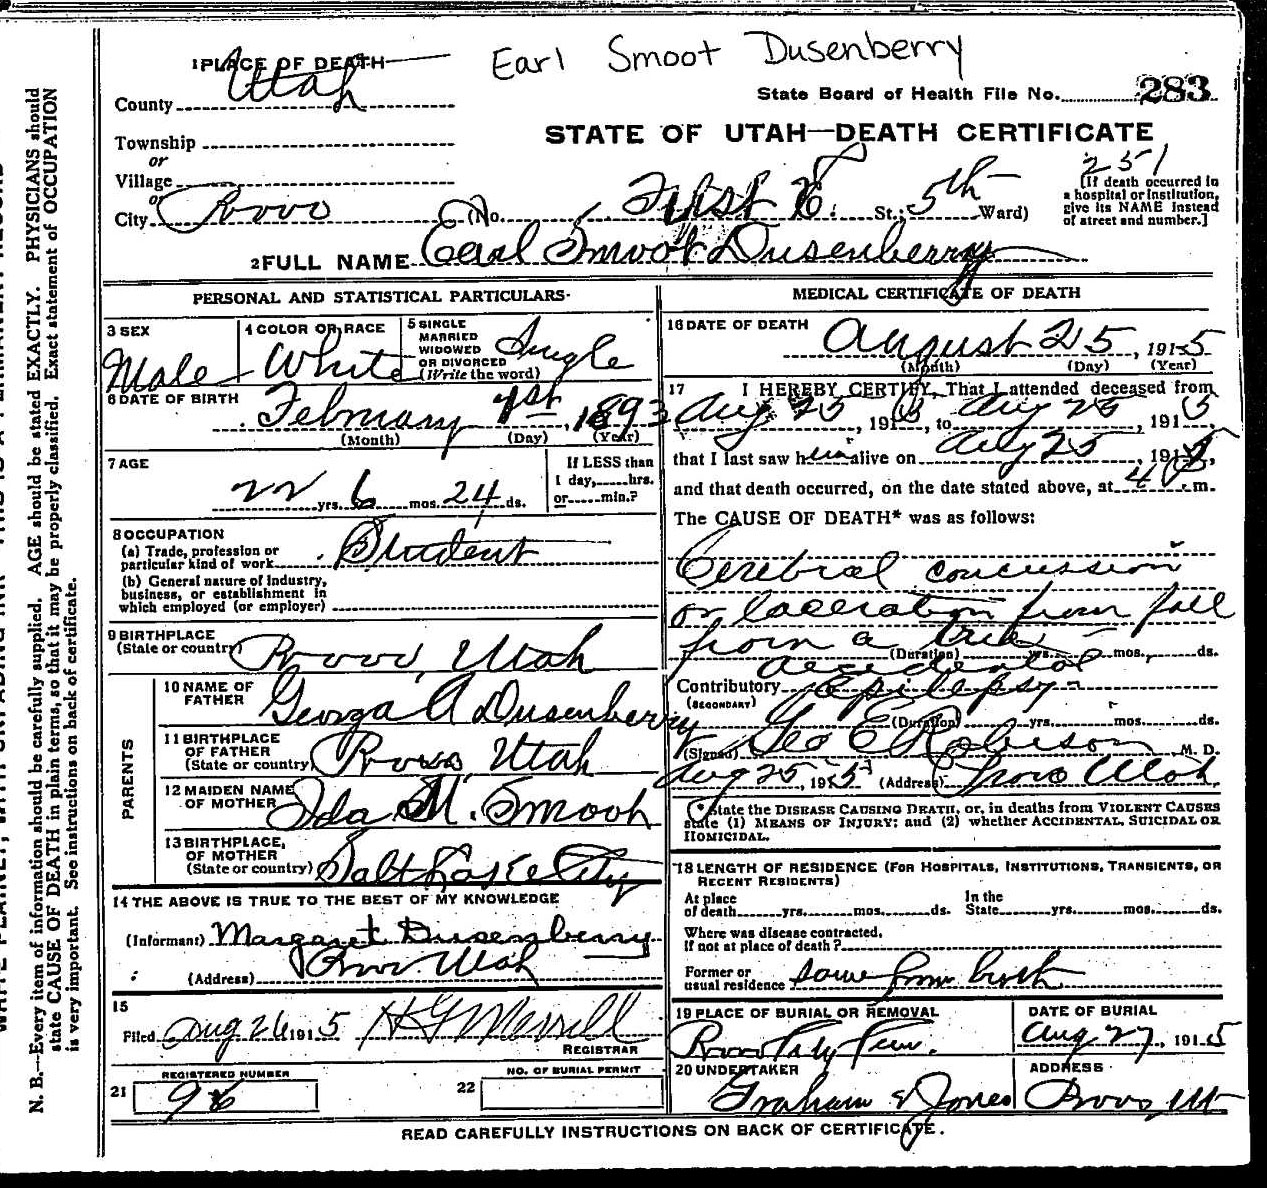 Earl Smoot Dusenberry
1 PLACE OF DEATH
County Utah
State Board of Health File No. 283
Township
STATE OF UTAH—DEATH CERTIFICATE
or
Village
or
251
[If death occurred in a hospital or institution, give its NAME instead of street and number.]
City Provo (No. First St.; 5th Ward)
2 FULL NAME Earl Smoot Dusenberry
PERSONAL AND STATISTICAL PARTICULARS
3 SEX Male
4 COLOR OR RACE White
5 SINGLE MARRIED WIDOWED OR DIVORCED (Write the word) Single
6 DATE OF BIRTH February 1st, 1893
(Month) (Day) (Year)
7 AGE 22 yrs. 6 mos. 24 ds.
If LESS than 1 day, hrs. or min.?
8 OCCUPATION
(a) Trade, profession or particular kind of work Student
(b) General nature of Industry, business, or establishment in which employed (or employer)
9 BIRTHPLACE (State or country) Provo, Utah
PARENTS
10 NAME OF FATHER George A Dusenberry
11 BIRTHPLACE OF FATHER (State or country) Provo Utah
12 MAIDEN NAME OF MOTHER Ida M. Smoot
13 BIRTHPLACE, OF MOTHER (State or country) Salt Lake City
14 THE ABOVE IS TRUE TO THE BEST OF MY KNOWLEDGE
(Informant) Margaret Dusenberry
(Address) Provo Utah
15
Filed Aug 26 1915 H G Merrill
REGISTRAR
21 REGISTERED NUMBER
22 NO. OF BURIAL PERMIT
MEDICAL CERTIFICATE OF DEATH
16 DATE OF DEATH August 25, 1915
(Month) (Day) (Year)
17 I HEREBY CERTIFY, That I attended deceased from
Aug 25, 1915, to Aug 25, 1915,
that I last saw him alive on Aug 25, 1915,
and that death occurred, on the date stated above, at 4 P.m.
The CAUSE OF DEATH* was as follows:
Cerebral concussion
or laceration from fall
from a tree
(Duration) yrs. mos. ds.
accidental
Contributory Epilepsy
(SECONDARY)
(Duration) yrs. mos. ds.
(Signed) Geo E Robison, M. D.
Aug 25, 1915 (Address) Provo Utah
*State the DISEASE CAUSING DEATH, or, in deaths from VIOLENT CAUSES state (1) MEANS OF INJURY; and (2) whether ACCIDENTAL, SUICIDAL OR HOMICIDAL.
18 LENGTH OF RESIDENCE (FOR HOSPITALS, INSTITUTIONS, TRANSIENTS, OR RECENT RESIDENTS)
At place of death yrs. mos. ds. In the State yrs. mos. ds.
Where was disease contracted, if not at place of death?
Former or usual residence same from birth
19 PLACE OF BURIAL OR REMOVAL Provo City Cem.
DATE OF BURIAL Aug 27, 1915
20 UNDERTAKER Graham & Jones
ADDRESS Provo, Ut
READ CAREFULLY INSTRUCTIONS ON BACK OF CERTIFICATE.
N. B.—Every item of information should be carefully supplied. AGE should be stated EXACTLY. PHYSICIANS should
state CAUSE OF DEATH in plain terms, so that it may be properly classified. Exact statement of OCCUPATION
is very important. See instructions on back of certificate.